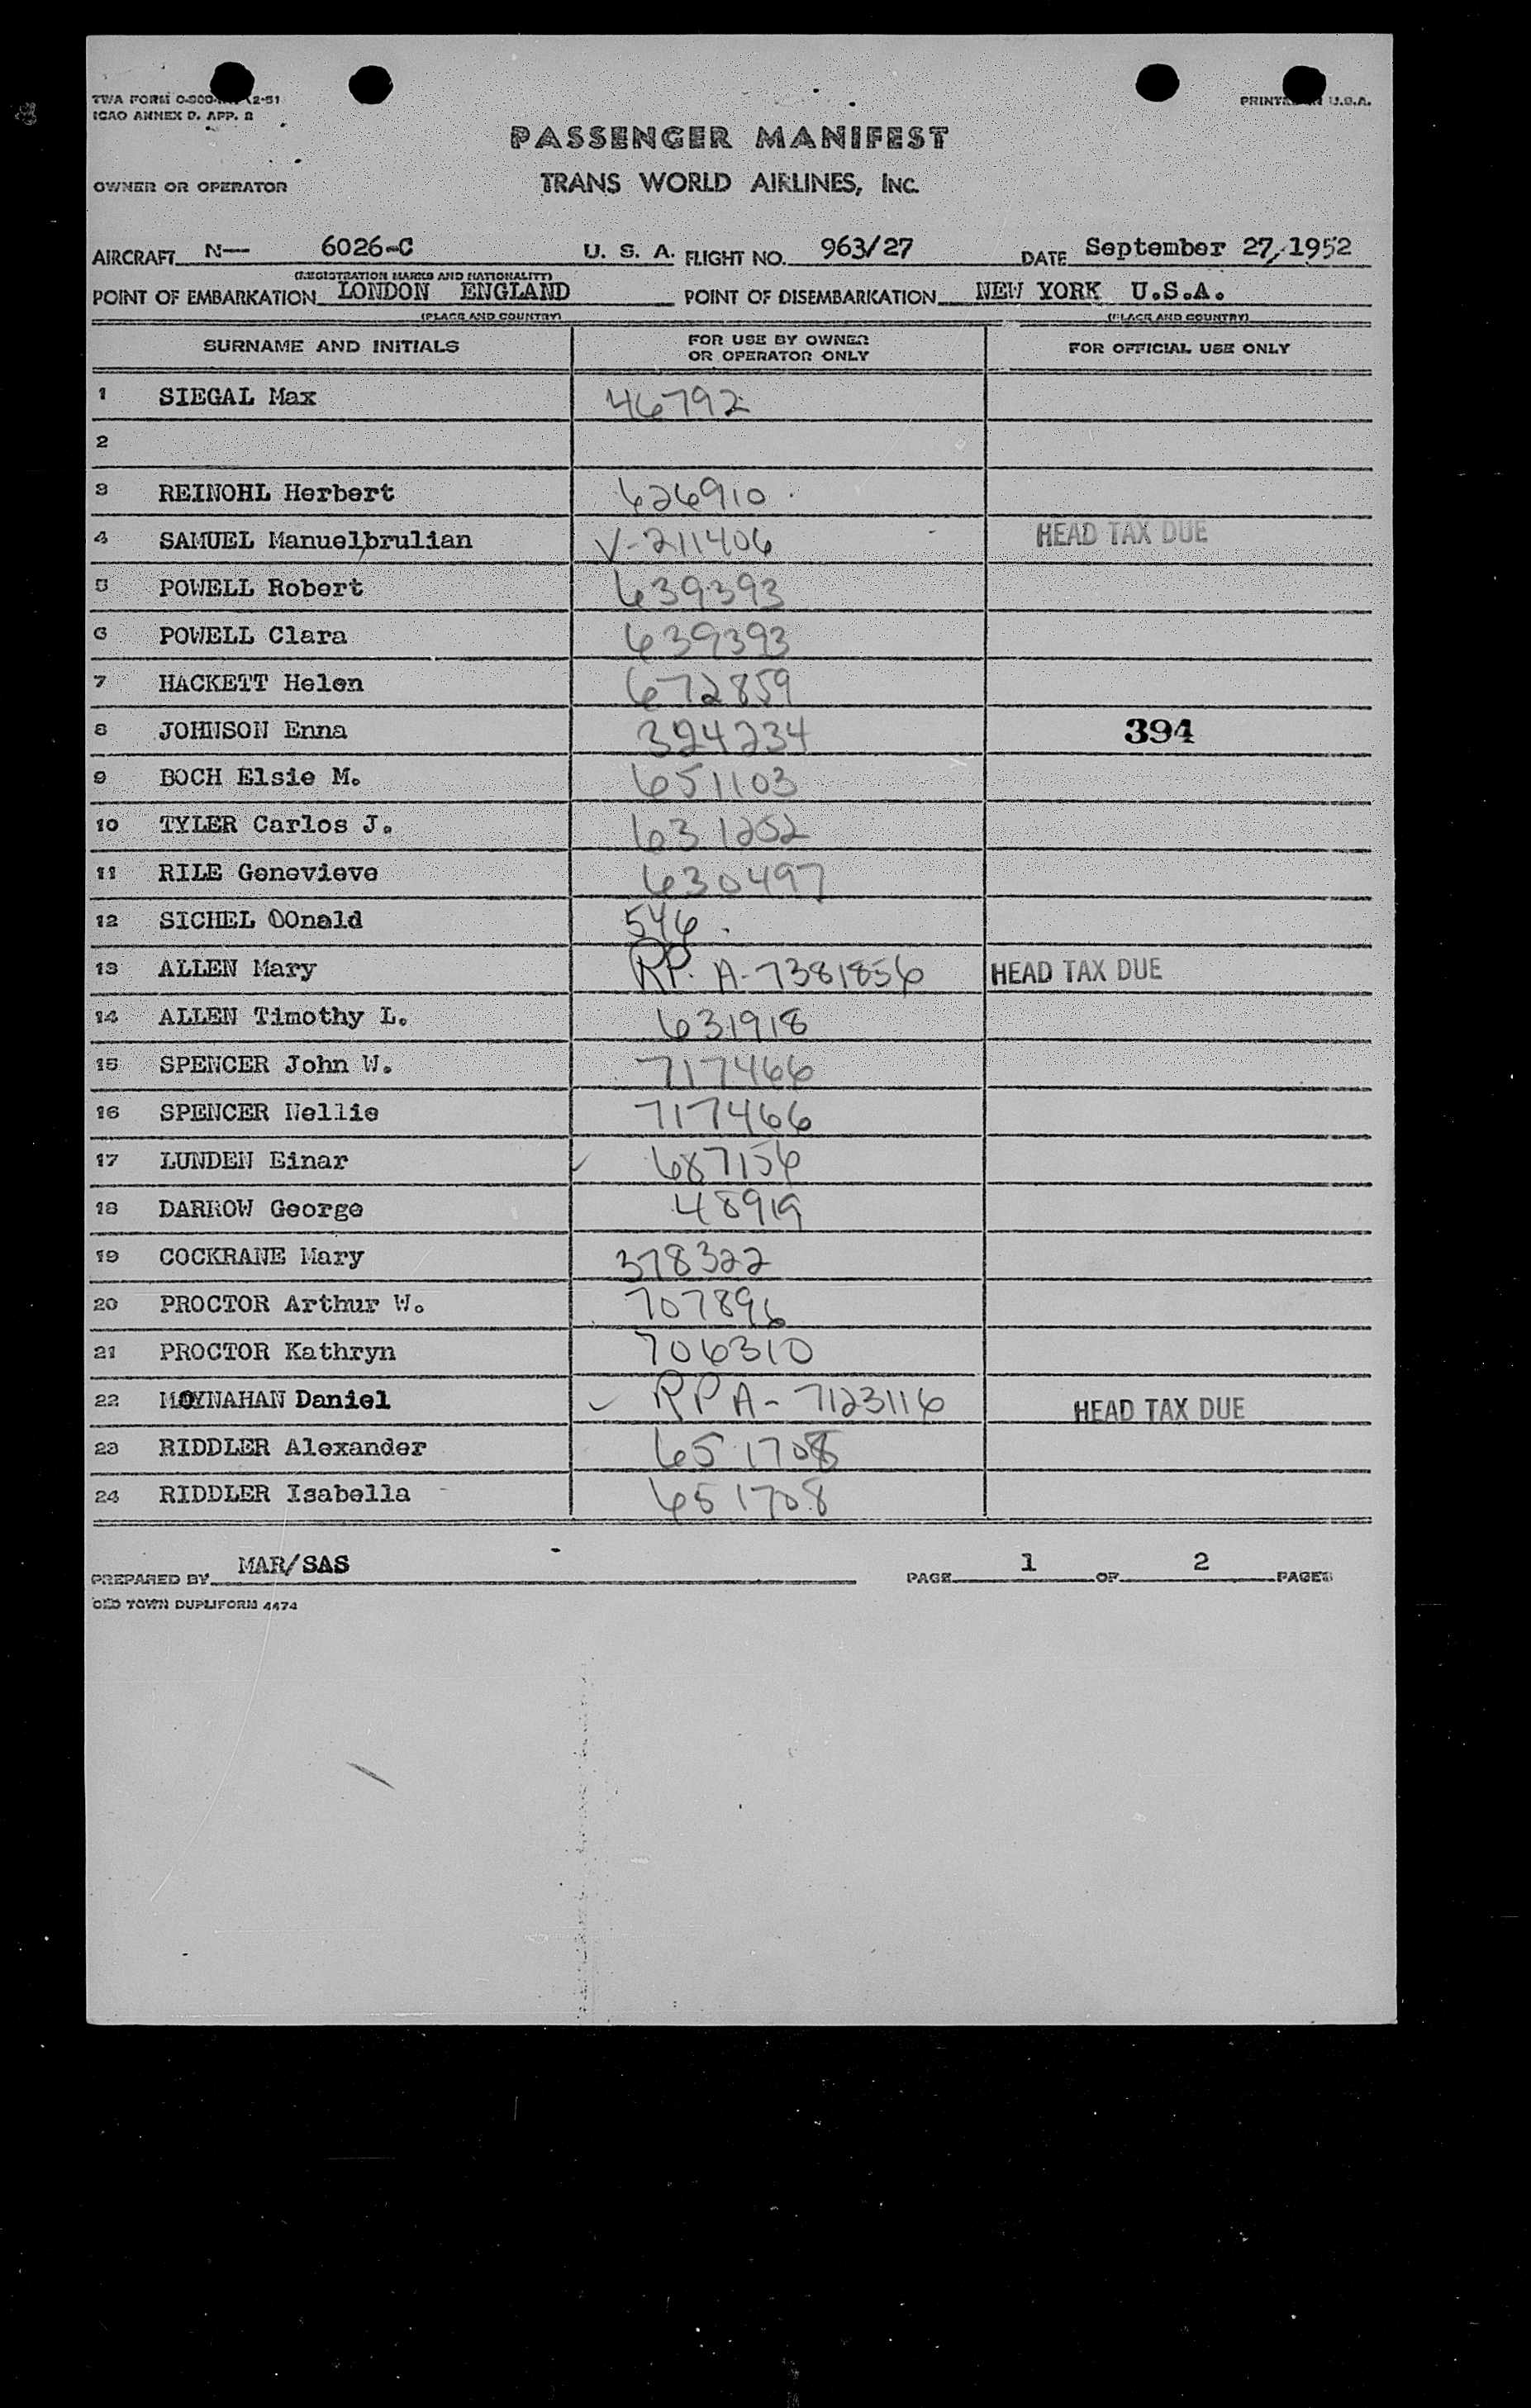 TWA FORM 0-800- 12-51
ICAO ANNEX 9. APP. 2
PRINTED IN U.S.A.
PASSENGER MANIFEST
OWNER OR OPERATOR
TRANS WORLD AIRLINES, INC.
AIRCRAFT N— 6026-C U. S. A. FLIGHT NO. 963/27 DATE September 27, 1952
(REGISTRATION MARKS AND NATIONALITY)
POINT OF EMBARKATION LONDON ENGLAND POINT OF DISEMBARKATION NEW YORK U.S.A.
(PLACE AND COUNTRY) (PLACE AND COUNTRY)
SURNAME AND INITIALS FOR USE BY OWNER OR OPERATOR ONLY FOR OFFICIAL USE ONLY
1 SIEGAL Max 46792
2
3 REINOHL Herbert 626910
4 SAMUEL Manuel,brulian V-211406 HEAD TAX DUE
5 POWELL Robert 639393
6 POWELL Clara 639393
7 HACKETT Helen 672859
8 JOHNSON Enna 324234 394
9 BOCH Elsie M. 651103
10 TYLER Carlos J. 631252
11 RILE Genevieve 630497
12 SICHEL DOnald 546
13 ALLEN Mary RP. A-7381856 HEAD TAX DUE
14 ALLEN Timothy L. 631918
15 SPENCER John W. 717466
16 SPENCER Nellie 717466
17 LUNDEN Einar 687156
18 DARROW George 48919
19 COCKRANE Mary 378322
20 PROCTOR Arthur W. 707896
21 PROCTOR Kathryn 706310
22 MOYNAHAN Daniel RPA-7123116 HEAD TAX DUE
23 RIDDLER Alexander 651708
24 RIDDLER Isabella 651708
PREPARED BY MAR/SAS PAGE 1 OF 2 PAGES
OLD TOWN DUPLIFORM 4474